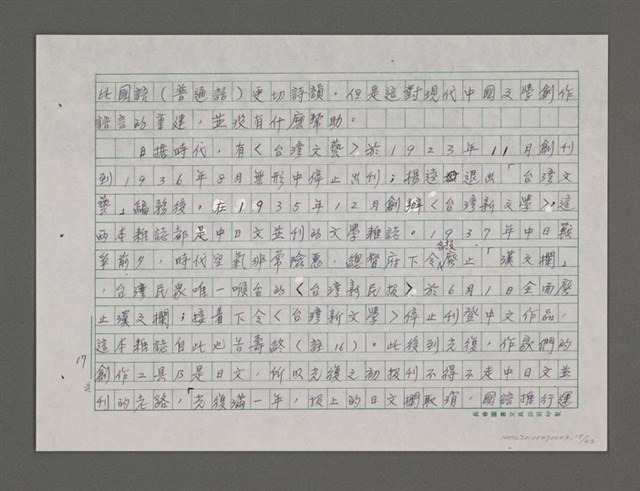 比國語（普通話）更切詩韻。但是這對現代中國文學創作
語言的重建，並沒有什麼幫助。
日據時代，有〈台灣文藝〉於1923年11月創刊
到1936年8月無形中停止出刊；楊逵退出「台灣文
藝」編務後，在1935年12月創辦〈台灣新文學〉，這
兩本雜誌都是中日文並刊的文學雜誌。1937年中日戰
爭前夕，時代空氣非常險惡，總督府下令廢止「漢文欄」
，台灣民眾唯一喉舌的〈台灣新民報〉於6月1日全面廢
止漢文欄；接著下令〈台灣新文學〉停止刊登中文作品，
這本雜誌自此也告壽歛（註16）。此後到光復，作家們的
創作工具只是日文，所以光復之初報刊不得不走中日文並
刊的老路，「光復滿一年，報上的日文欄取消，國語推行運
17